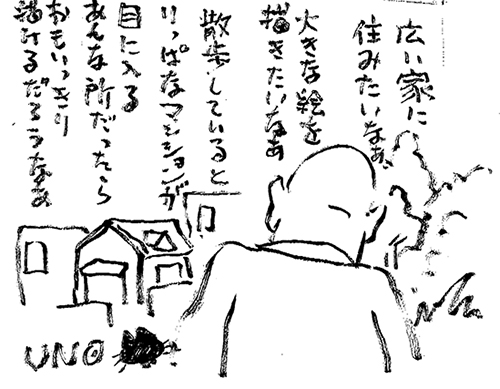 広い家に
住みたいなぁ、
大きな絵を
描きたいなあ
散歩していると
りっぱなマンションが
目に入る
あんな所だったら
おもいっきり
描けるだろうなあ
UNO